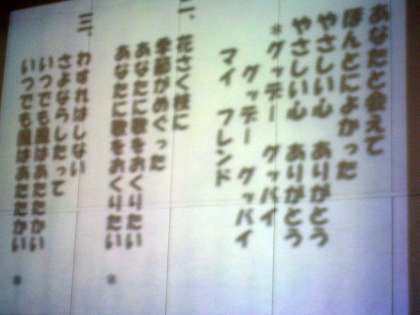 あなたと会えて
ほんとによかった
やさしい心 ありがとう
やさしい心 ありがとう
*グッデー グッバイ
グッデー グッバイ
マイ フレンド
二、花さく枝に
季節がめぐった
あなたに歌をおくりたい
あなたに歌をおくりたい *
三、わすれはしない
さよならしたって
いつでも風はあたたかい
いつでも風はあたたかい *